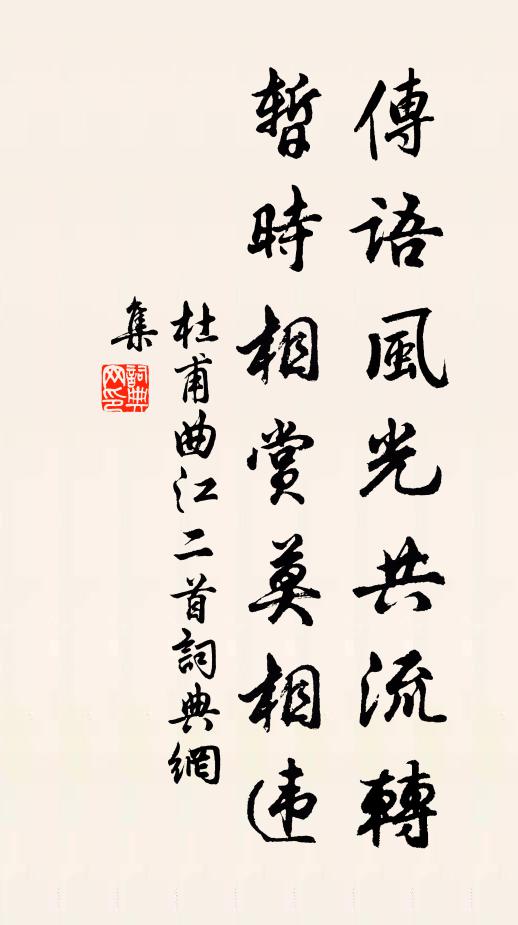 傳語風光共流轉
暫時相賞莫相违
杜甫曲江二首詞典網
集
詞典
网印